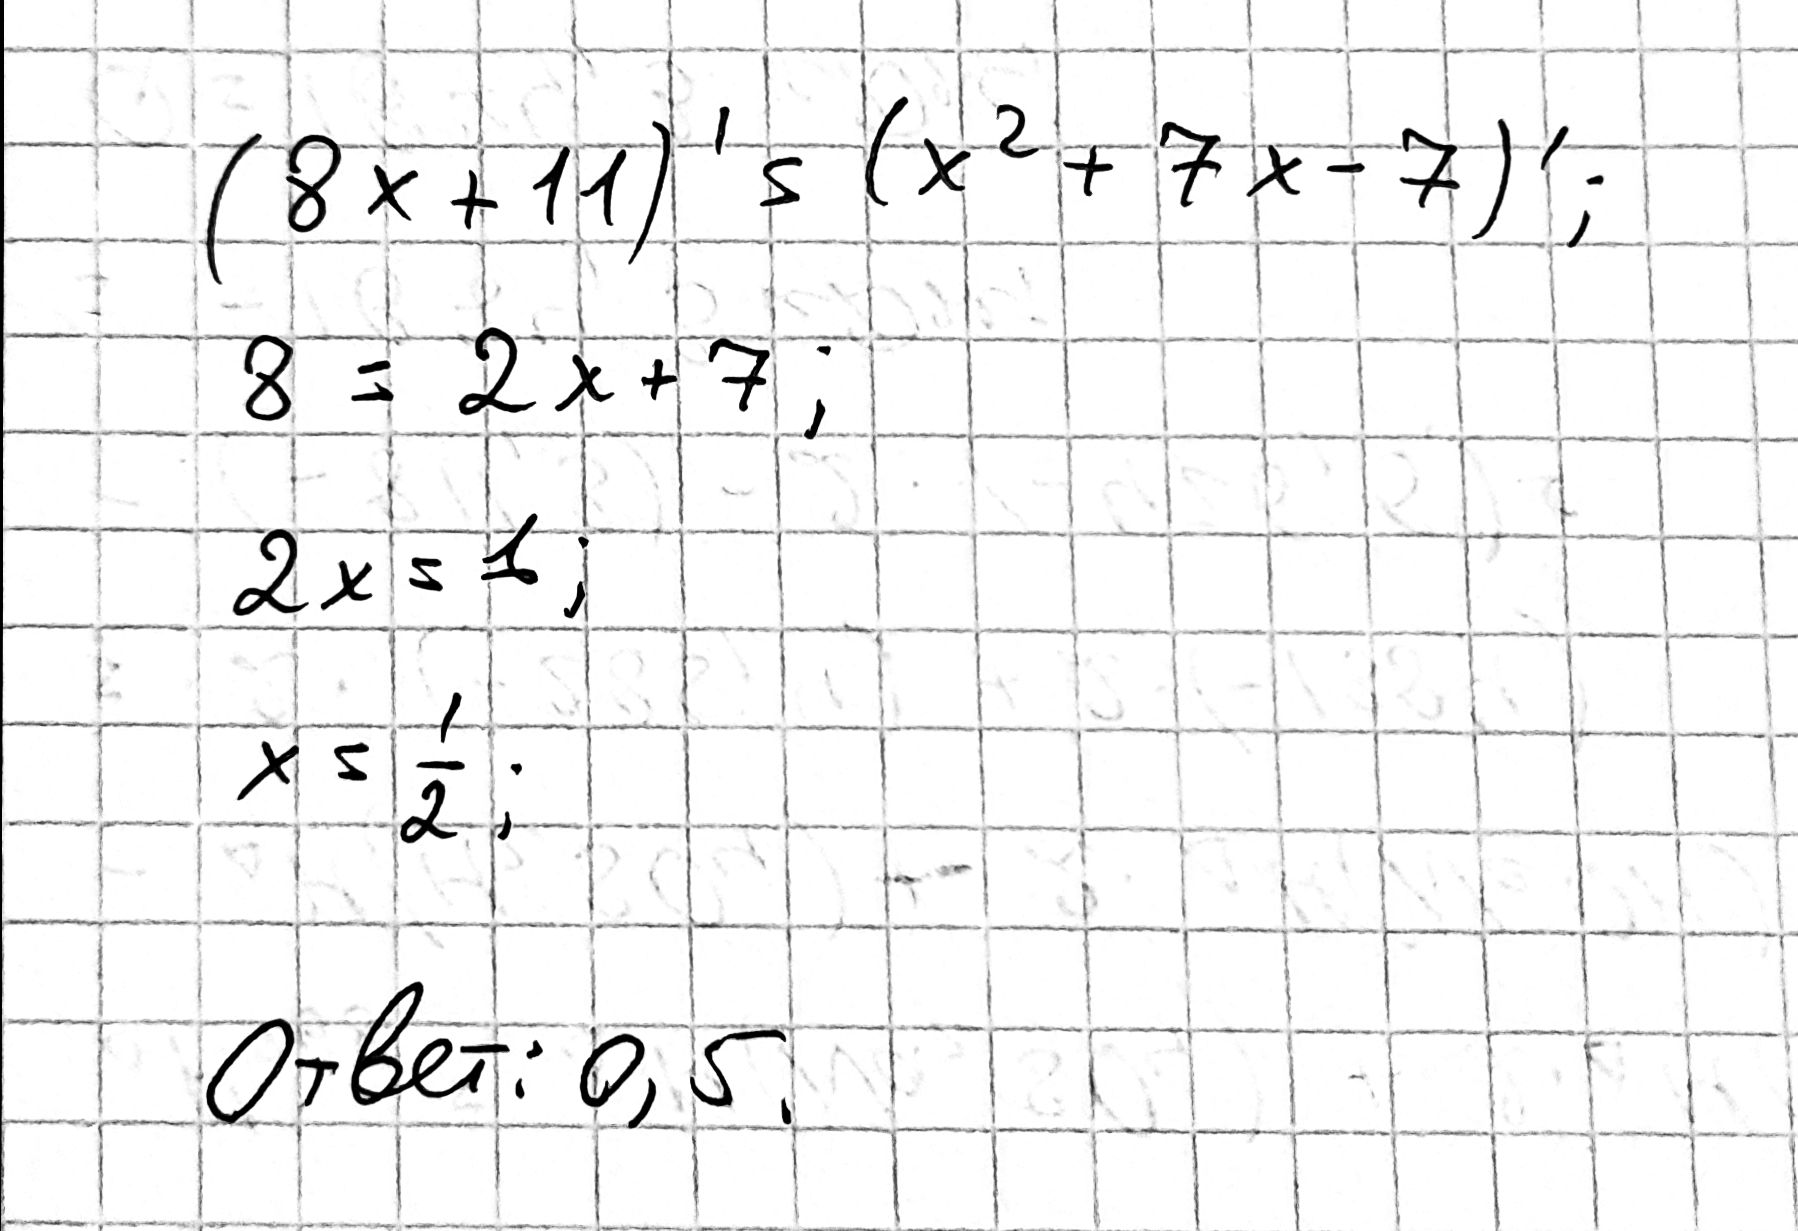 (8x+11)' = (x²+7x-7)';
8 = 2x+7;
2x = 1;
x = 1/2;
Ответ: 0,5.